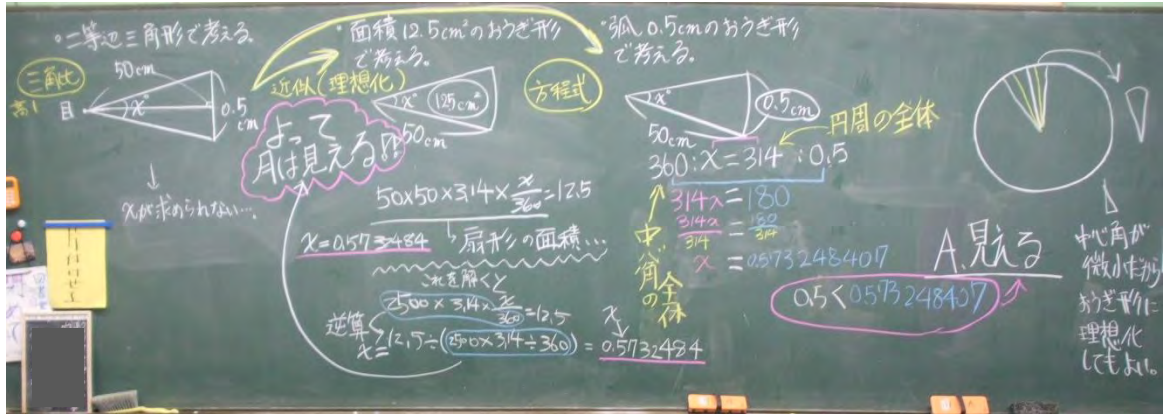 ・二等辺三角形で考える。
三角比
高1
50cm
目
x°
0.5
cm
↓
xが求められない…。
・面積12.5cm²のおうぎ形
で考える。
近似(理想化)
よって
月は見える!!
x°
125cm²
50cm
50×50×3.14×x/360=12.5
x=0.5732484
扇形の面積…
これを解くと
2500×3.14×x/360=12.5
逆算
x=12.5÷(2500×3.14÷360)=0.5732484
x
・弧0.5cmのおうぎ形
で考える。
方程式
x°
0.5cm
50cm
円周の全体
360:x=314:0.5
314x=180
314x/314=180/314
x=0.573248407
中心角の
全体
A.見える
0.5<0.573248407
中心角が
微小だから
おうぎ形に
理想化
してもよい。